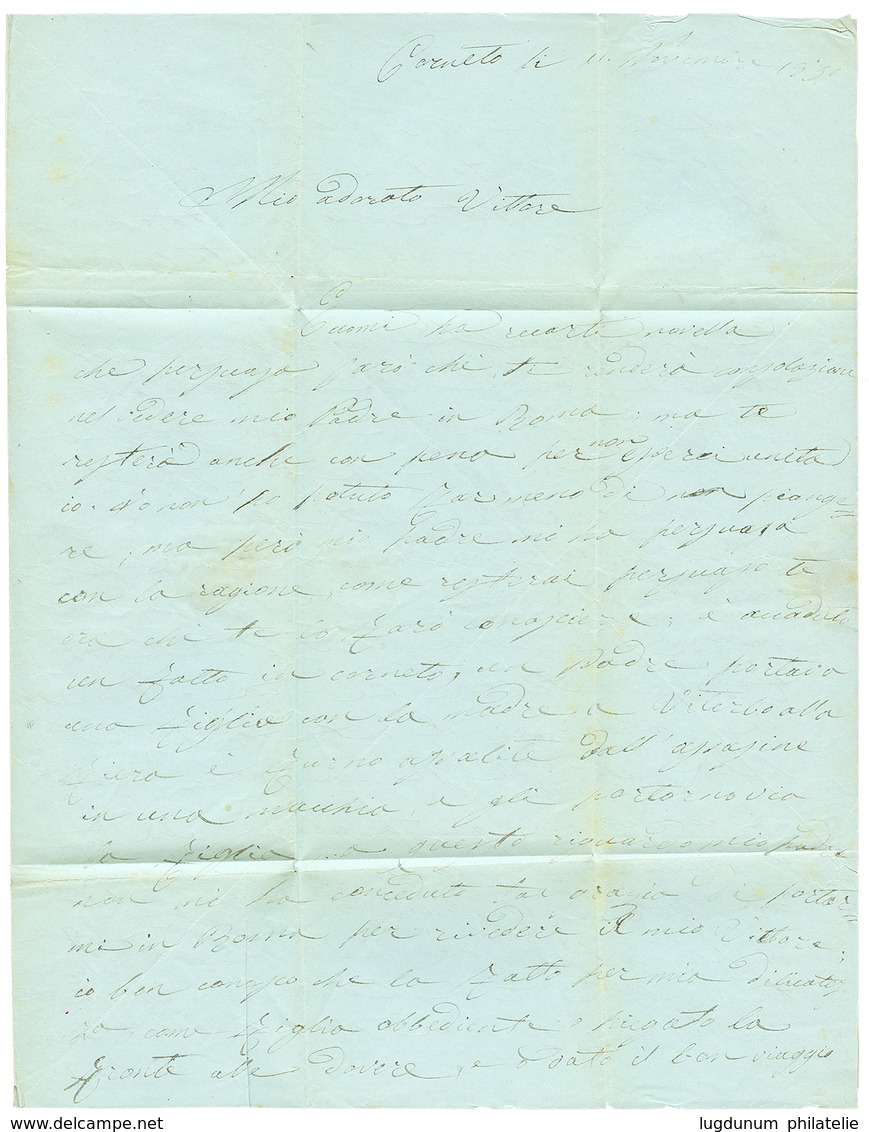 Corneto li 11 Novembre
Mio adorato Vittore
Eccomi ha recarti novella
che persuasa sarò che te renderà consolazione
nel vedere mio Padre in Roma, ma te
resterà anche con pena per non essersi unita
io. Io non ho potuto far meno di non piange=
re, ma però mio Padre mi ha persuasa
con la ragione, come resterai persuaso te
ora che te lo farò conosciere, è accaduto
un fatto in corneto, un Padre portava
una figlia con la madre a Viterbo alla
fiera e furno assalite dall'assasine
in una macchia, e gli portorno via
la figlia, a questo riguardo mio Padre
non mi ha conceduto tal grazia di portar=
mi in Roma per rivedere il mio Vittore,
io ben conosco che la fatto per mia dilicatez
za, come figlia obbediente o piegato la
fronte alle dovere, e o dato il bon viaggio
delcampe.net
lugdunum philatelie